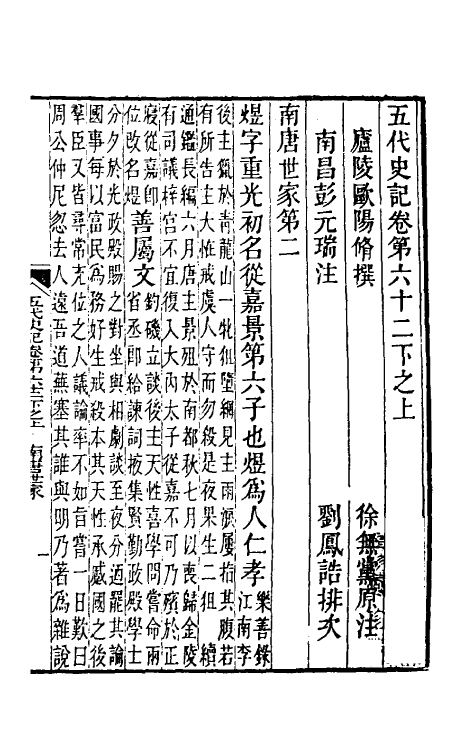 五代史記卷第六十二下之上
廬陵歐陽脩撰 徐無黨原注
南昌彭元瑞注 劉鳳誥排次
南唐世家第二
煜字重光初名從嘉景第六子也煜爲人仁孝樂善錄
江南李
後主獵於青龍山一牝狙墮網見主兩淚屢指其腹若
有所告主大怪戒虞人守而勿殺是夜果生二狙 續
通鑑長編六月唐主景殂於南都秋七月以喪歸金陵
有司議梓宮不宜復入大內太子從嘉不可乃殯於正
寢從嘉卽位改名煜善屬文釣磯立談後主天性喜學問嘗命兩
省丞郎給諫詞掖集賢勤政殿學士
分夕於光政殿賜之對坐與相劇談至夜分迺罷其論
國事每以富民爲務好生戒殺本其天性承蹙國之後
羣臣又皆尋常充位之人議論率不如旨嘗一日歎曰
周公仲尼忽去人遠吾道蕪塞其誰與明乃著爲雜說
五代史記卷第六十二下之上 南唐世家 一